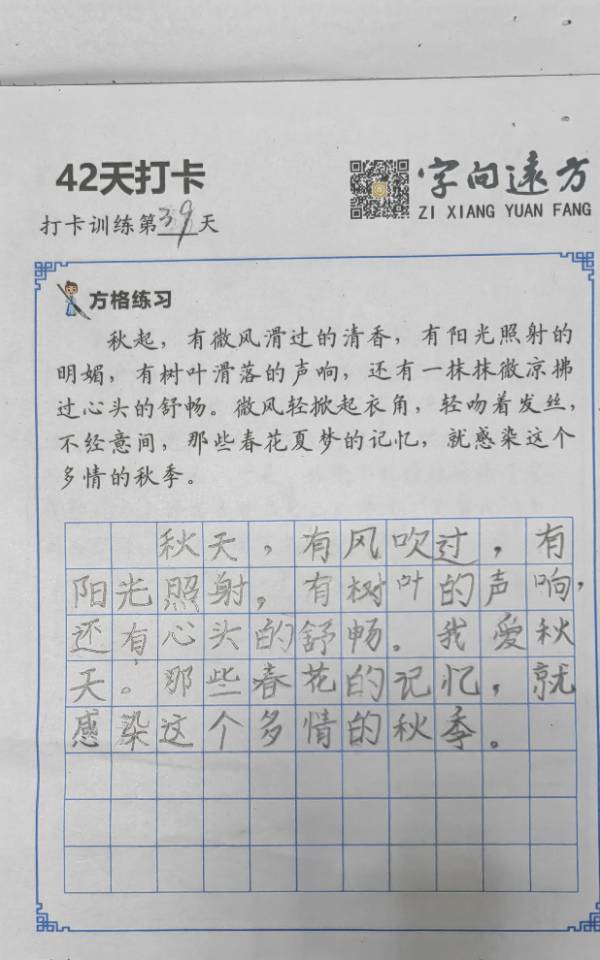 42天打卡
字向远方
ZI XIANG YUAN FANG
打卡训练第39天
方格练习
秋起，有微风滑过的清香，有阳光照射的
明媚，有树叶滑落的声响，还有一抹抹微凉拂
过心头的舒畅。微风轻掀起衣角，轻吻着发丝，
不经意间，那些春花夏梦的记忆，就感染这个
多情的秋季。
秋天，有风吹过，有
阳光照射，有树叶的声响，
还有心头的舒畅。我爱秋
天。那些春花的记忆，就
感染这个多情的秋季。